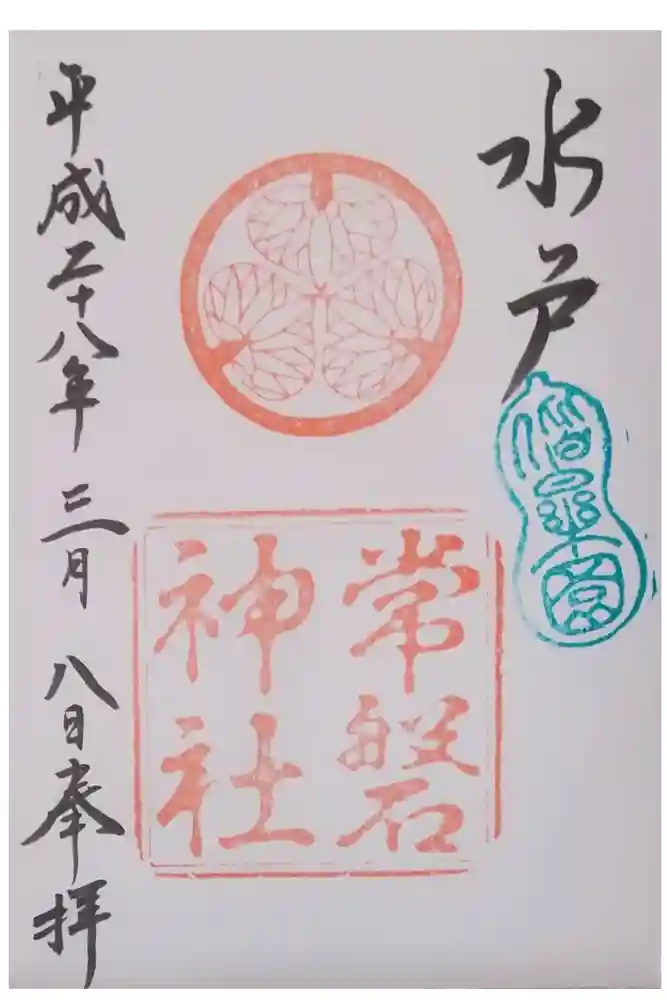 水戸
偕楽園
常磐
神社
平成二十八年 三月 八日奉拝